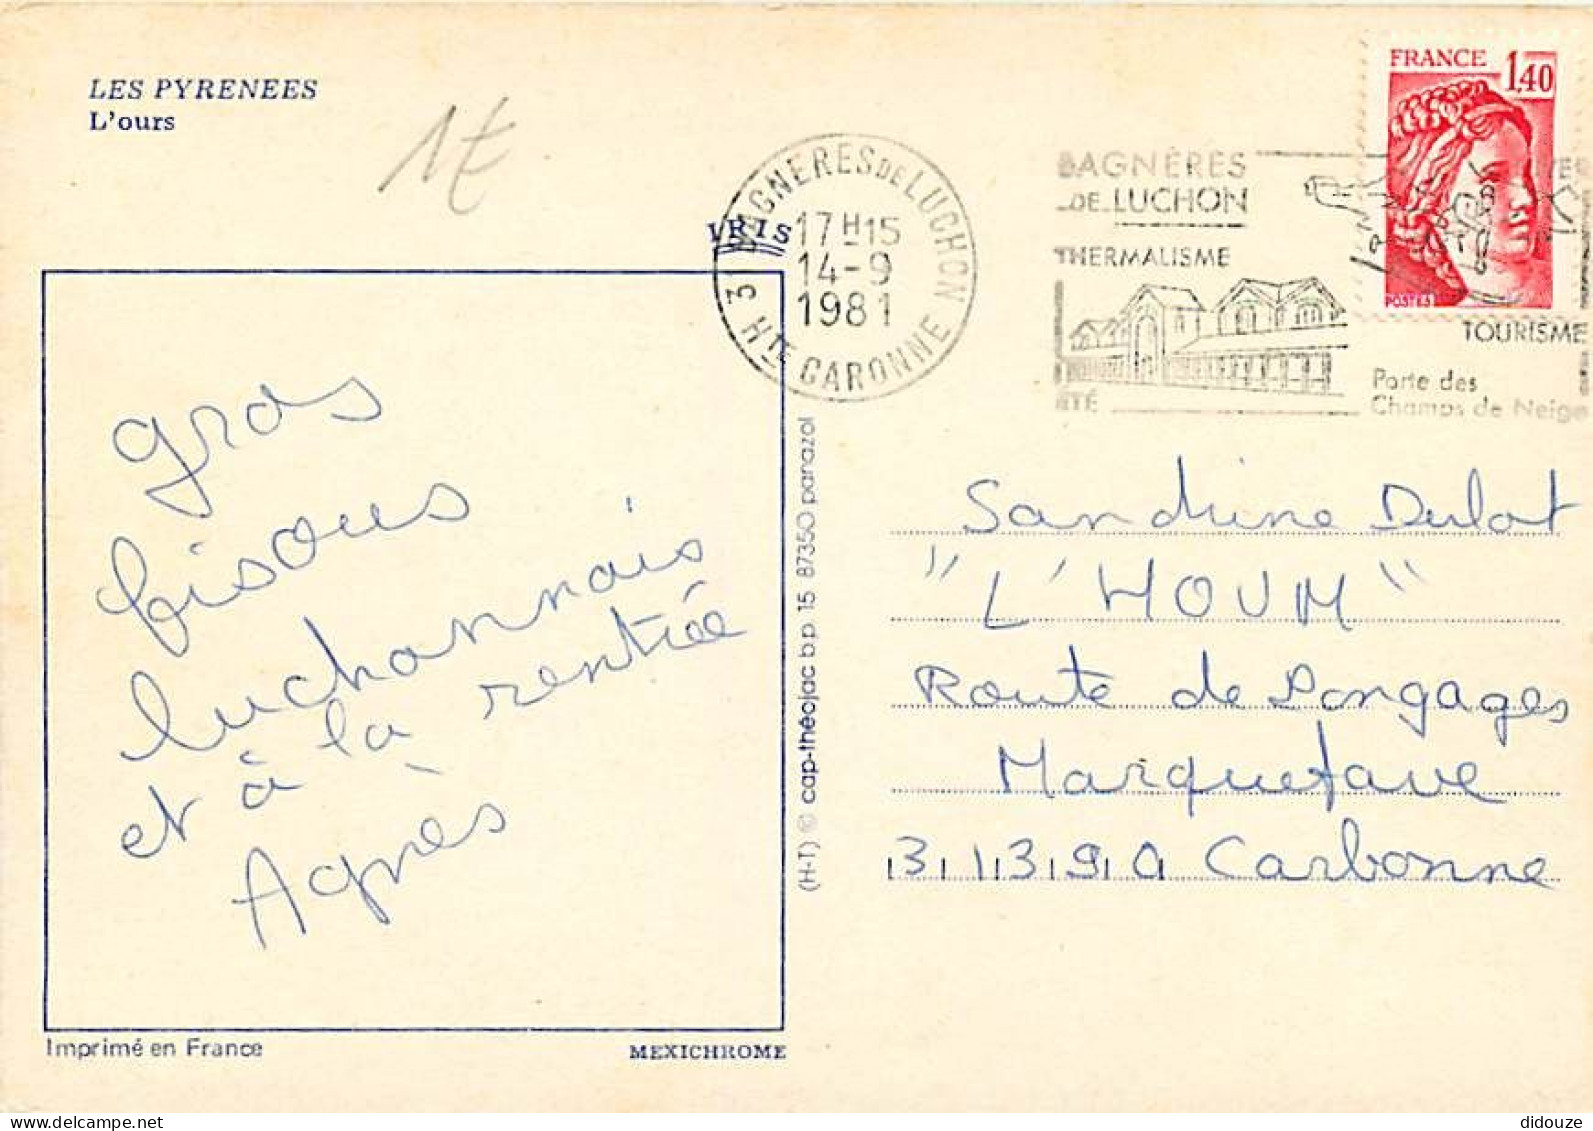 LES PYRENEES
L'ours
1€
IRIS
BAGNERES DE LUCHON
17H15
14-9
1981
31 HTE GARONNE
BAGNÈRES
DE LUCHON
THERMALISME
ÉTÉ
TOURISME
Porte des
Champs de Neige
FRANCE 1,40
POSTES
gros
bisous
luchonnais
et à la rentrée
Agnès
(H-T) © cap-théojac b.p. 15 87350 panazol
Sandrine Dulot
"L'HOUM"
Route de Longages
Marquefave
31390 Carbonne
Imprimé en France
MEXICHROME
delcampe.net
didouze